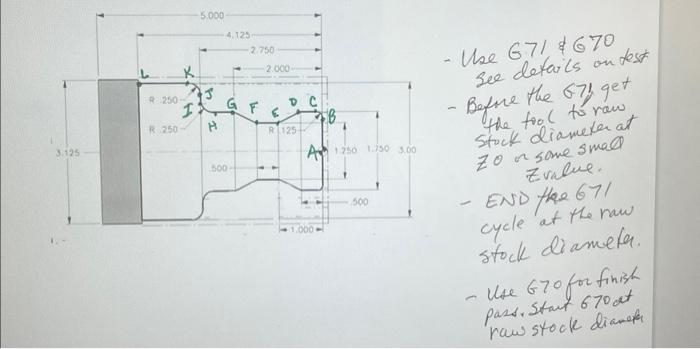 5.000
4.125
2.750
2.000
L K
J
R .250
I
G F E D C
B
H
R .250
R .125
A
3.125
1.250 1.750 3.00
.500
.500
1.000
1.
- Use G71 & G70
See details on test
- Before the G71, get
the tool to raw
stock diameter at
Z0 or some small
Z value.
- END the G71
cycle at the raw
stock diameter.
- Use G70 for finish
pass. Start G70 at
raw stock diameter